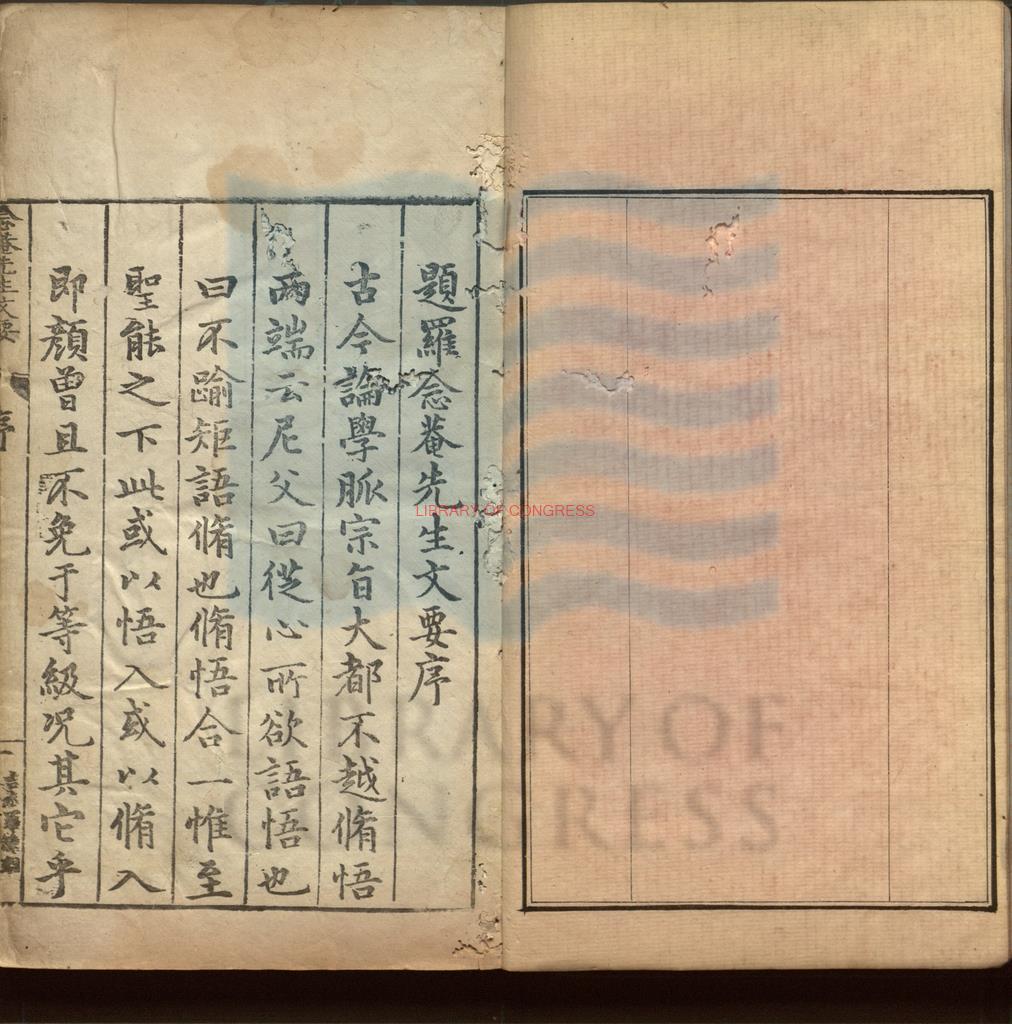 題羅念菴先生文要序
古今論學脈宗旨大都不越脩悟
兩端云尼父曰從心所欲語悟也
曰不踰矩語脩也脩悟合一惟至
聖能之下此或以悟入或以脩入
即顏曾且不免于等級況其它乎
念菴先生文要
序
一
LIBRARY OF CONGRESS
LIBRARY OF
CONGRESS